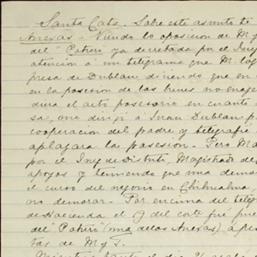 Santa Cata. Sabe este asunto ti
Anexas - Viendo la oposicion de M y
del "Cahiri" ya decretada por el Juez
atención á un telegrama que M. log
presa de Dublan diciendo que en
en la posesion de los bienes no enaje
dura el acto posesorio en cuanto
sa, me dirijí á Juan Dublan p
cooperacion del padre y telegrafia
aplazara la posesion. - Pero Ma
por el Juez de Distrito, Magistrado de
apoyos y temiendo que una demo
el curso del negocio en Chihuahua,
oro demorar. - Por encima del teleg
de Hacienda el 9 del cote fué pue
del "Cahiri" (una de las Anexas) á pe
tas de M y S.